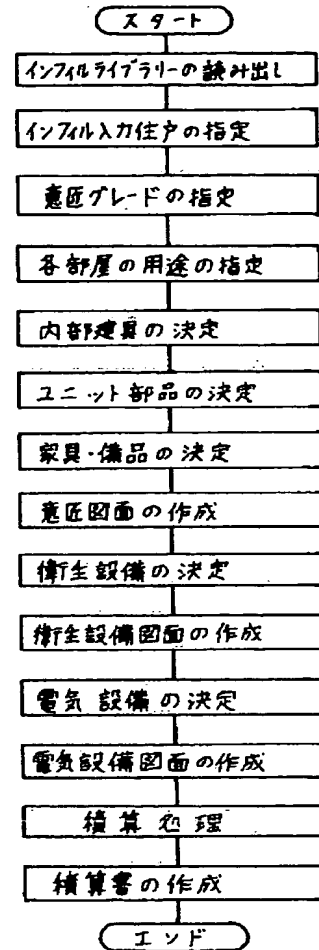 スタート
インフィルライブラリーの読み出し
インフィル入力住戸の指定
意匠グレードの指定
各部屋の用途の指定
内部建具の決定
ユニット部品の決定
家具・備品の決定
意匠図面の作成
衛生設備の決定
衛生設備図面の作成
電気設備の決定
電気設備図面の作成
積算処理
積算書の作成
エンド